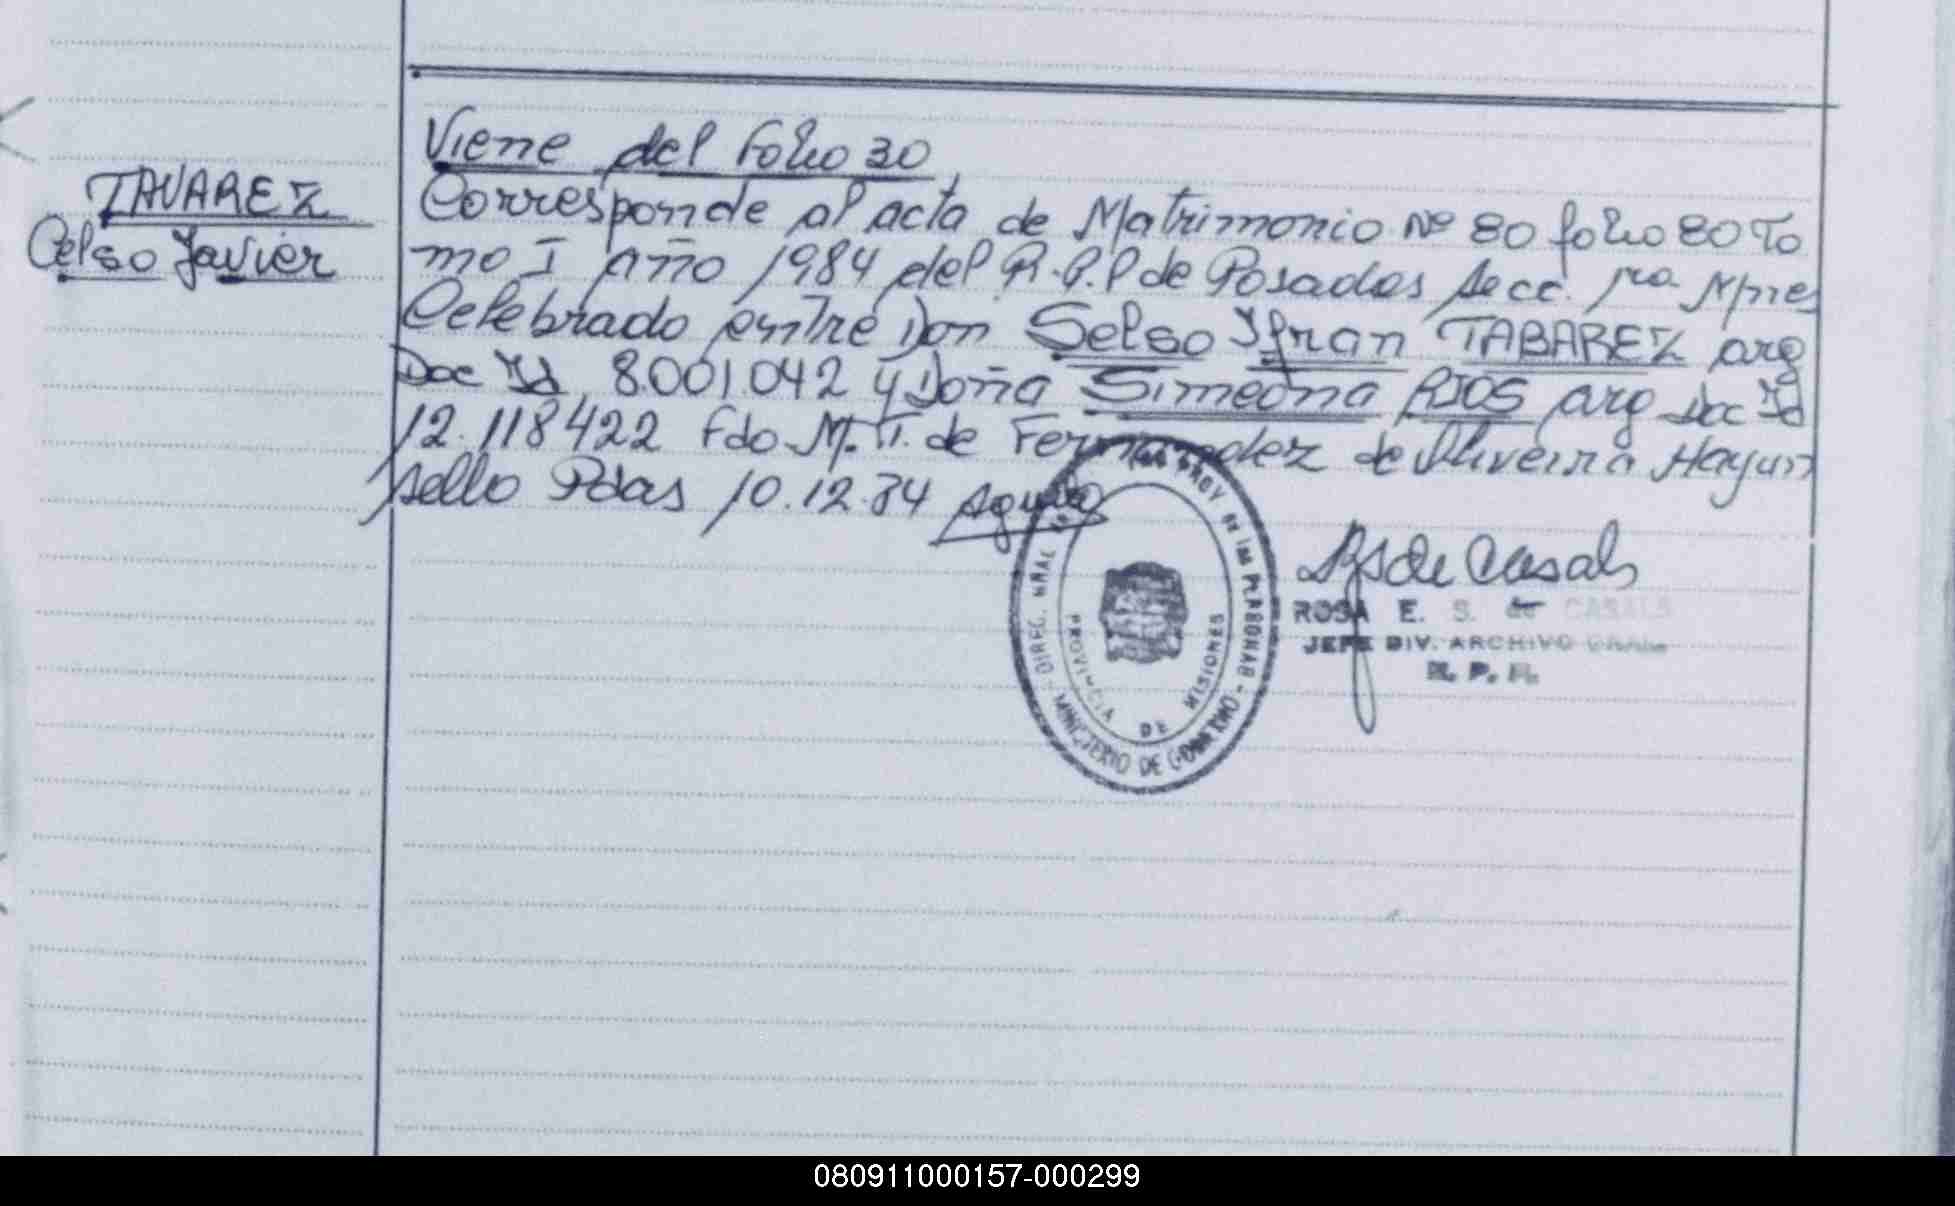 TAVAREZ
Celso Javier
Viene del Folio 30
Corresponde al acta de Matrimonio Nº 80 folio 80 To
mo I año 1984 del R.P.P de Posadas Secc. 1ra Mnes
Celebrado entre Don Selso Ifran TABAREZ arg
Doc Id 8.001.042 y Doña Simeona RIOS arg Doc Id
12.118422 Fdo M.T. de Fernandez de Oliveira Hay un
sello Pdas 10.12.84
DIREC. GRAL DEL REG. PROV DE LAS PERSONAS - MINISTERIO DE GOBIERNO -
PROVINCIA DE MISIONES
RS de Casals
ROSA E. S. de CASALS
JEFE DIV. ARCHIVO GRAL.
R. P. P.
080911000157-000299